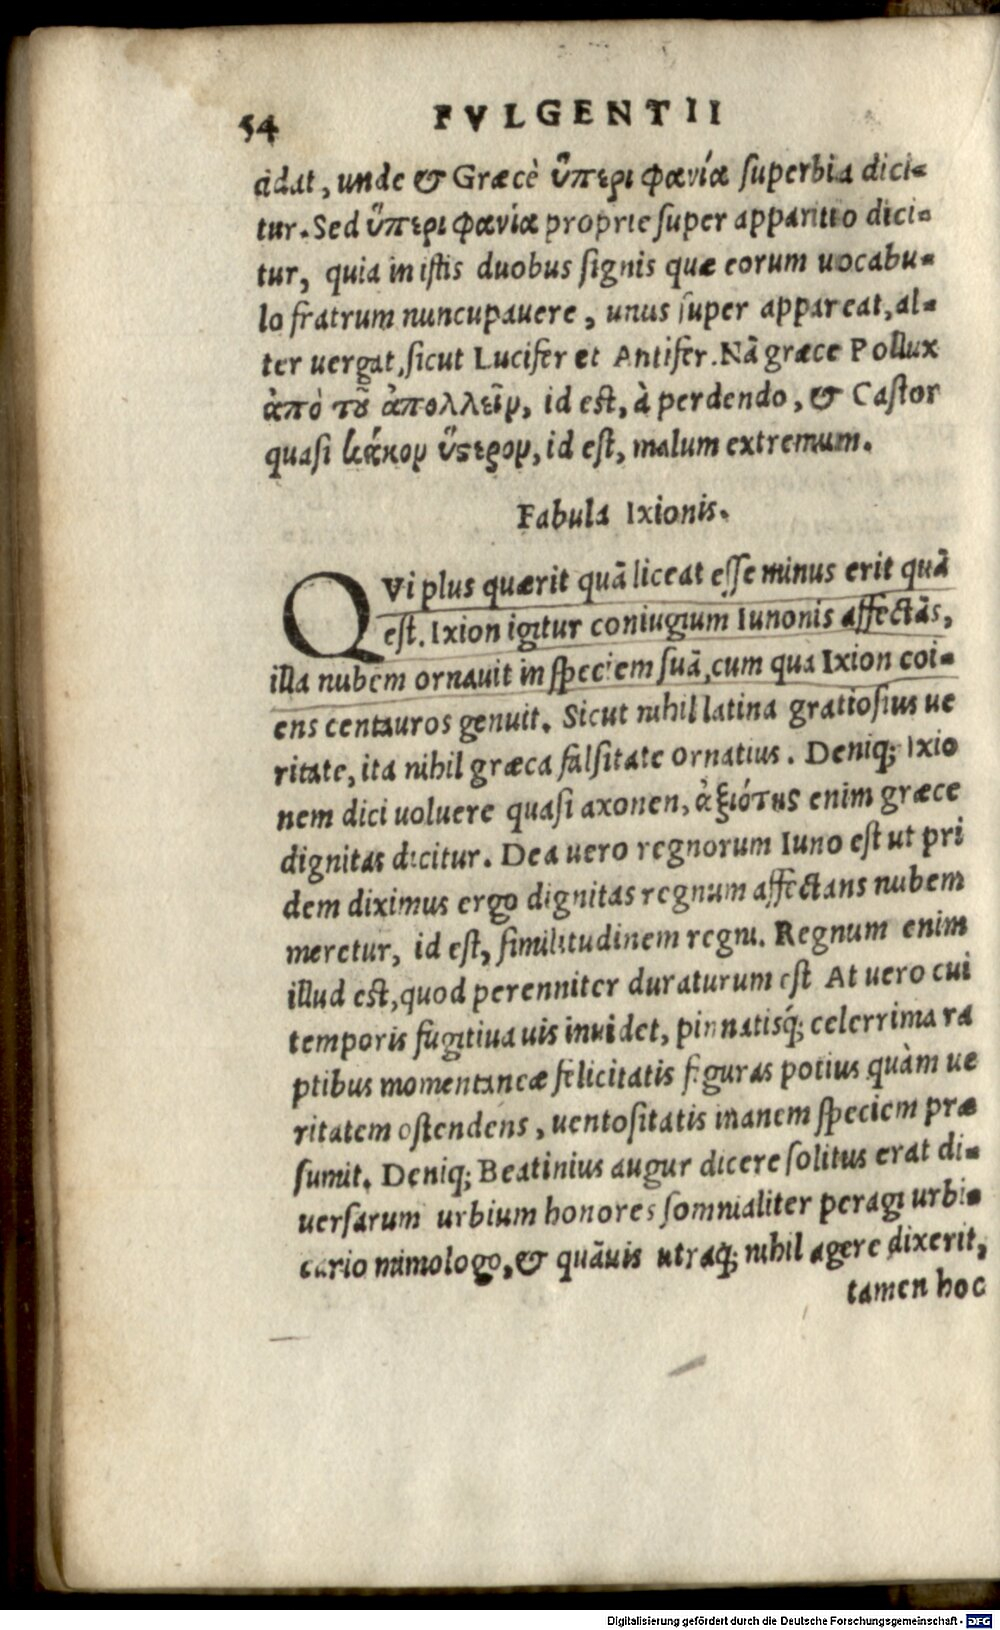 54 FVLGENTII
cidat, unde & Græcè ὕπερι φανία superbia dici=
tur. Sed ὕπερι φανία proprie super apparitio dici=
tur, quia in istis duobus signis quæ eorum uocabu=
lo fratrum nuncupauere, unus super appareat, al=
ter uergat, sicut Lucifer et Antifer. Nā græce Pollux
ἀπὸ τοῦ ἀπολλεῖν, id est, à perdendo, & Castor
quasi κάκον ὕστερον, id est, malum extremum.
Fabula Ixionis.
QVi plus quærit quā liceat esse minus erit quā
est. Ixion igitur coniugium Iunonis affectās,
illa nubem ornauit in speciem suā, cum qua Ixion coi=
ens centauros genuit. Sicut nihil latina gratiosius ue
ritate, ita nihil græca falsitate ornatius. Deniq; Ixio
nem dici uoluere quasi axonen, ἀξιότης enim græce
dignitas dicitur. Dea uero regnorum Iuno est ut pri
dem diximus ergo dignitas regnum affectans nubem
meretur, id est, similitudinem regni. Regnum enim
illud est, quod perenniter duraturum est At uero cui
temporis fugitiua uis inuidet, pinnatisq́; celerrima ra
ptibus momentaneæ felicitatis figuras potius quàm ue
ritatem ostendens, uentositatis inanem speciem præ
sumit. Deniq; Beatinius augur dicere solitus erat di=
uersarum urbium honores somnialiter peragi urbi=
cario mimologo, & quāuis utraq; nihil agere dixerit,
tamen hoc
Digitalisierung gefördert durch die Deutsche Forschungsgemeinschaft - DFG